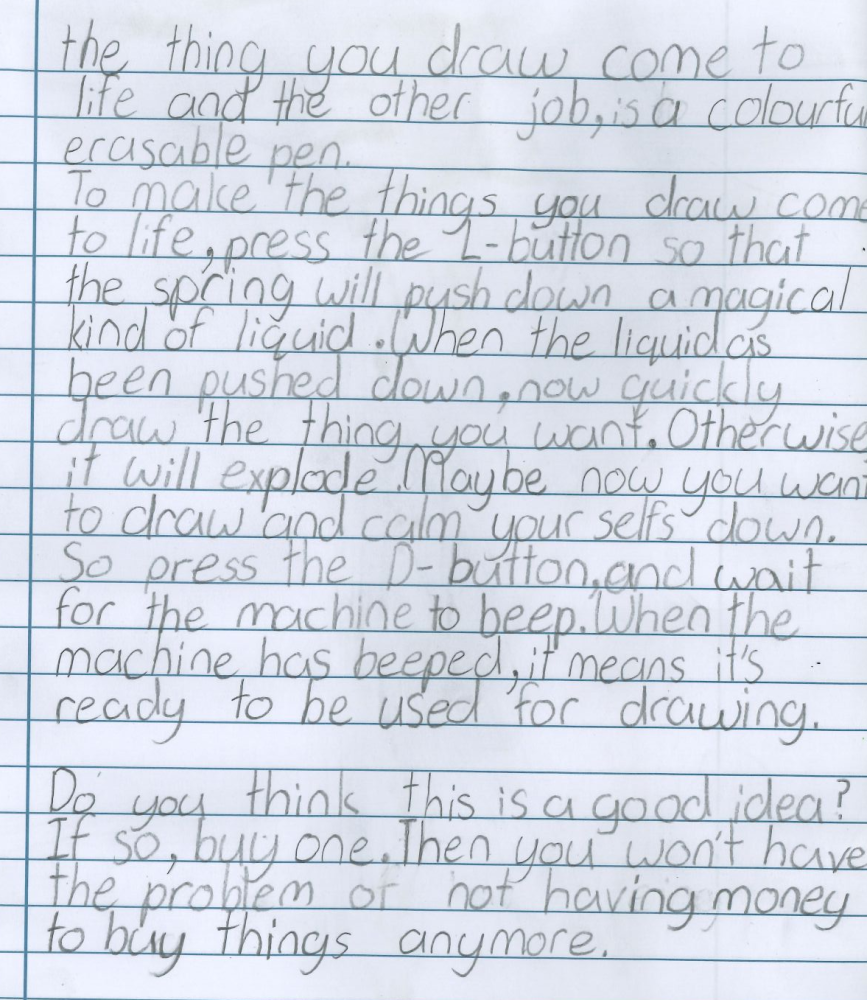 the thing you draw come to
life and the other job, is a colourfu
erasable pen.
To make the things you draw come
to life, press the L-button so that
the spring will push down a magical
kind of liquid. When the liquid as
been pushed down, now quickly
draw the thing you want. Otherwise
it will explode. Maybe now you want
to draw and calm your selfs down.
So press the D-button, and wait
for the machine to beep. When the
machine has beeped, it means it's
ready to be used for drawing.
Do you think this is a good idea?
If so, buy one. Then you won't have
the problem of not having money
to buy things anymore.